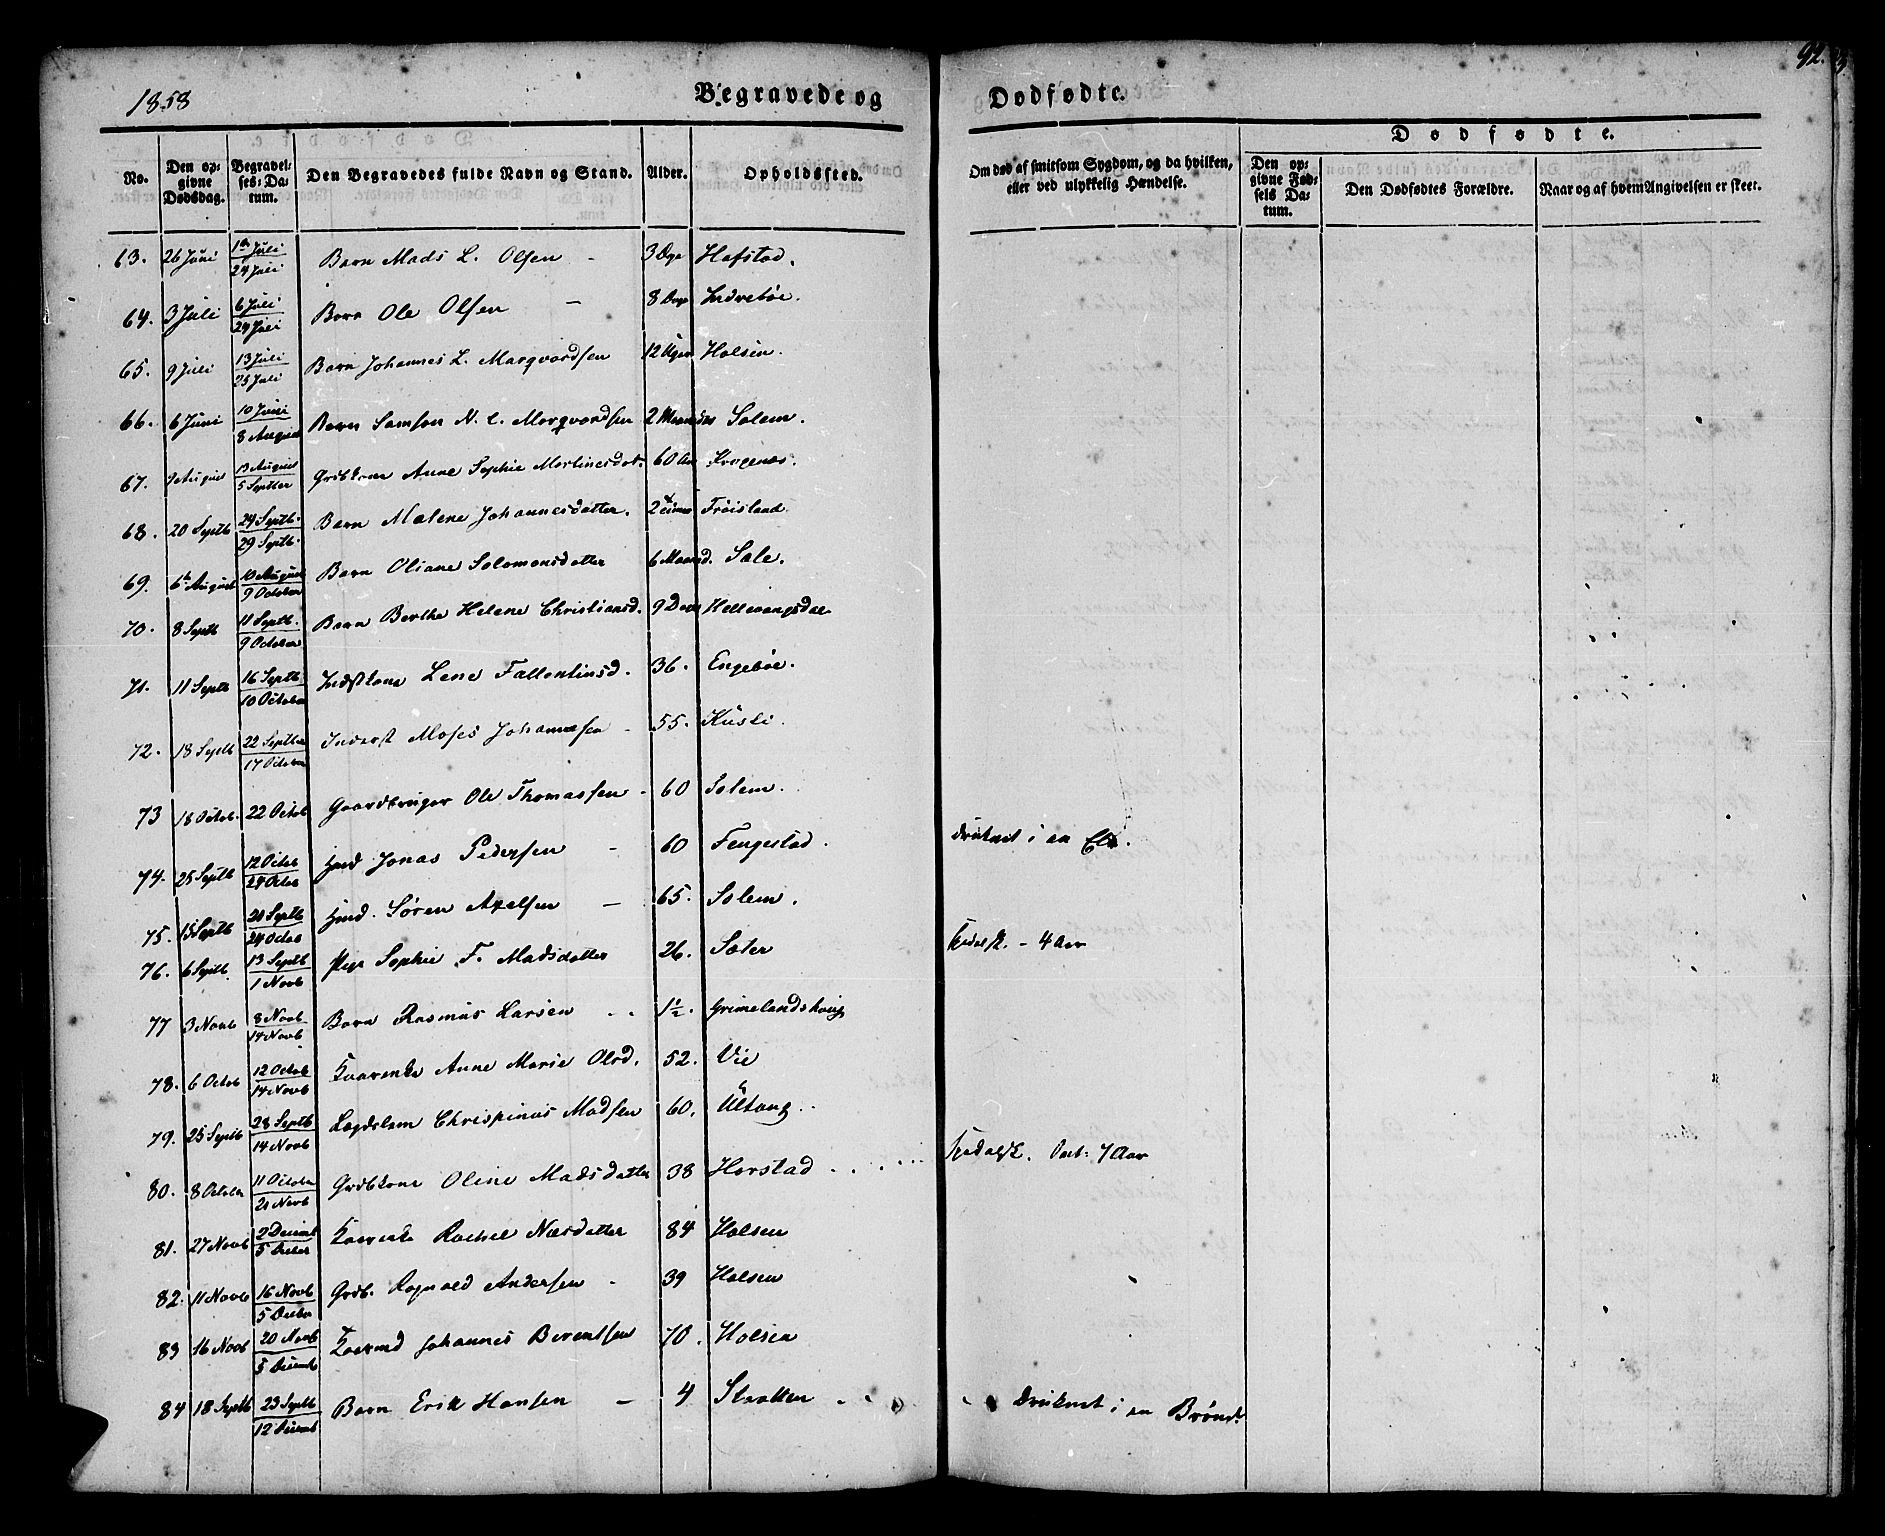 1858 Begravede og Dødfødte. 92.
Dødfødte.
No. Den opgivne Dødsdag. Begravelses-Datum. Den Begravedes fulde Navn og Stand. Alder. Opholdssted. Om død af smitsom Sygdom, og da hvilken, eller ved ulykkelig Hændelse. Den opgivne Fødsels Datum. Den Dødfødtes Forældre. Naar og af hvem Angivelsen er skeet.
63. 26 Juni 1ste Juli 24 Juli Barn Mads L. Olsen - 3 Dge Hafstad.
64. 3 Juli 6 Juli 24 Juli Barn Ole Olsen - 8 Dage Indrebøe.
65. 9 Juli 13 Juli 25 Juli Barn Johannes L. Marqvordsen 12 Uger Holsen.
66. 6 Juni 10 Juni 8 August Barn Samson N. C. Marqvordsen 2 Maaneder Solem.
67. 9 August 13 August 5 Septber Grbkone Anne Sophie Mortinesdat. 60 Aar
68. 20 Septb 24 Septb. 29 Septb. Barn Malene Johannesdatter. 2 Frøisland
69. 6te August 10 August 9 October Barn Oliane Solomonsdatter 6 Maaned. Sale.
70. 8 Septb 11 Septb. 9 October Barn Berthe Helene Christiansd. 9 Dage Hellevangsdal
71. 11 Septb 16 Septb 10 October Indstkone Lene Fallentinsd. 36. Engebøe.
72. 18 Septb 22 Septber 17 October Inderst Moses Johannesen - 55. Kusli.
73 18 Octob. 22 Octob Gaardbruger Ole Thomassen - 60 Solem.
74. 25 Septb 12 Octob 24 Octob Hmd Jonas Pedersen - 60 Fengestad. druknet i en Elv.
75. 15 Septb 21 Septb 24 Octob Hmd. Søren Axelsen - 65. Solem.
76. 6 Septb. 13 Septb 1 Novb Pige Sophie F. Madsdatter 26. Sæter spedalsk. - 4 Aar
77 3 Novb 8 Novb 14 Novb Barn Rasmus Larsen 1½. Grimelandshaug
78. 6 Octob 12 Octob 14 Novb Kaarenke Anne Marie Olsd. 52. Vie
79. 25 Septb 28 Septb 14 Novb Lægdslem Chrispinus Madsen 60. Ultang
80. 8 October 11 October 21 Novb Grdbkone Oline Madsdatter 38 Horstad spedalsk. 7 Aar
81. 27 Novb 2 Decemb 5 Decbr Kaarenke Rachel Næsdatter 84 Holsen
82. 11 Novb 16 Novb 5 Decbr Grdb. Ragnvald Andersen - 39 Holsen
83 16 Novb 20 Novb 5 Decemb Kaarmd Johannes Berentsen 70. Holsen
84 18 Septb 23 Septb 12 Decemb Barn Erik Hansen - 4 Druknet i en Brønd.